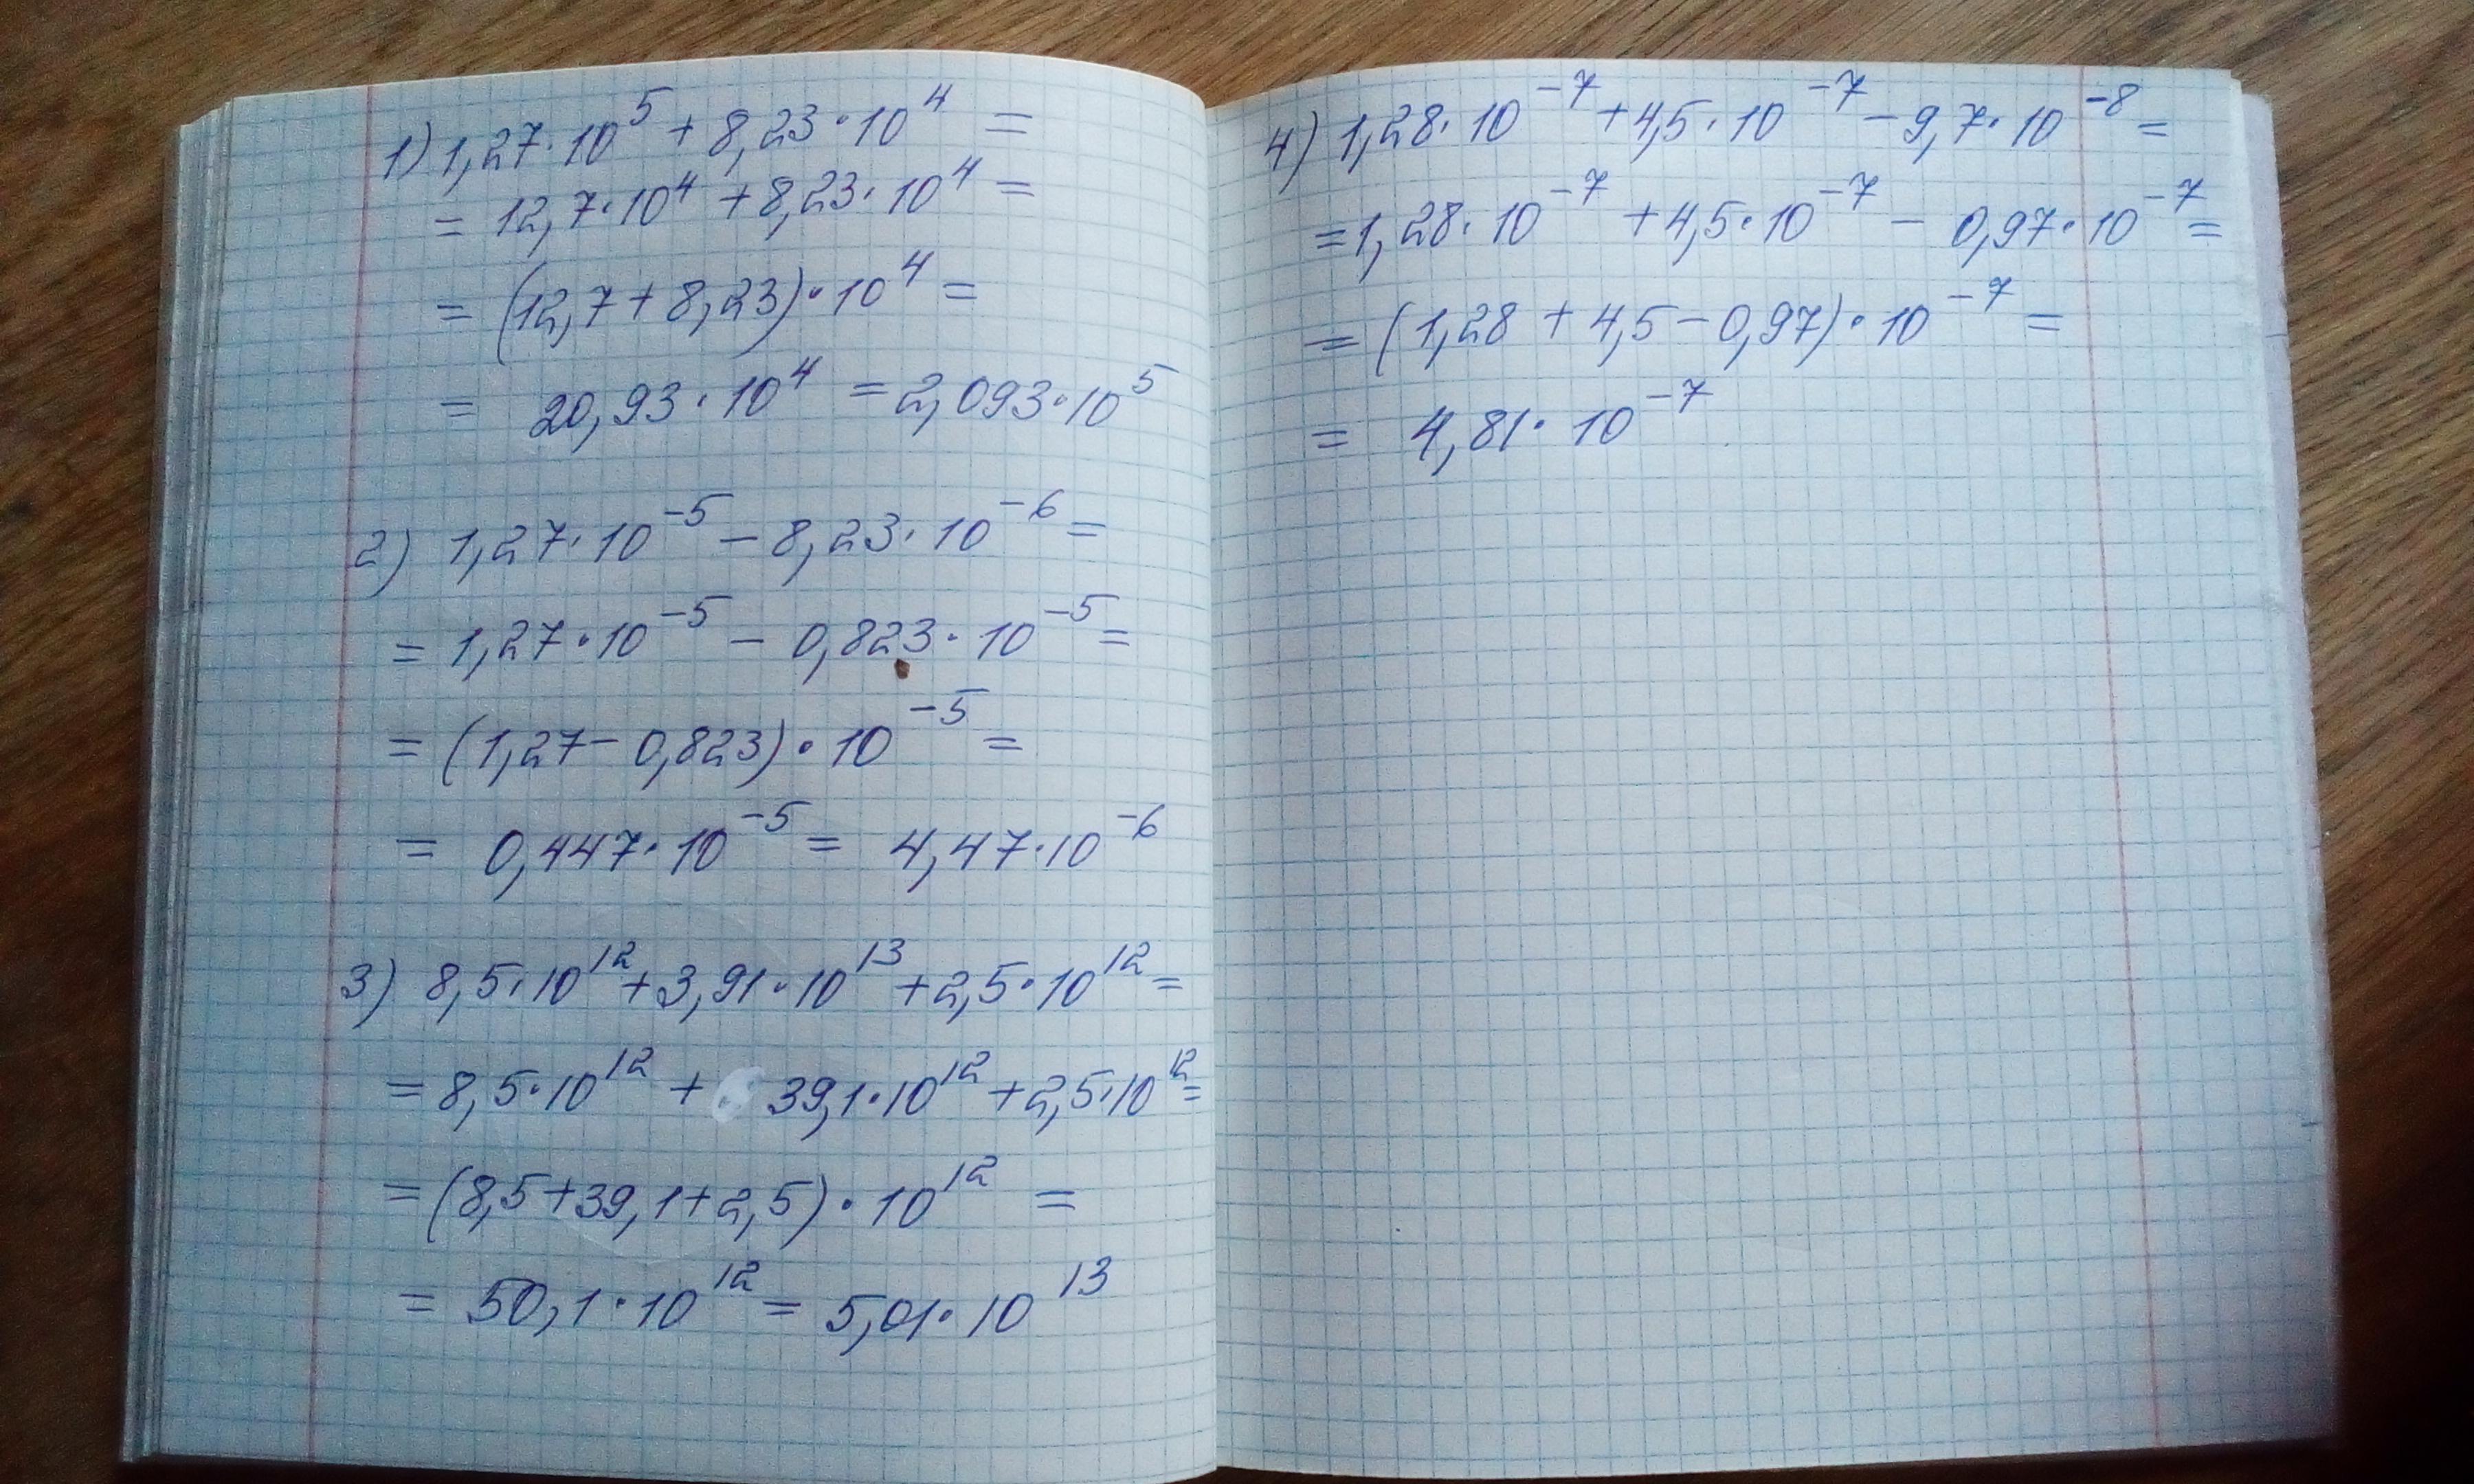 1) 1,27·10⁵ + 8,23·10⁴ =
= 12,7·10⁴ + 8,23·10⁴ =
= (12,7 + 8,23)·10⁴ =
= 20,93·10⁴ = 2,093·10⁵
2) 1,27·10⁻⁵ – 8,23·10⁻⁶ =
= 1,27·10⁻⁵ – 0,823·10⁻⁵ =
= (1,27 – 0,823)·10⁻⁵ =
= 0,447·10⁻⁵ = 4,47·10⁻⁶
3) 8,5·10¹² + 3,91·10¹³ + 2,5·10¹² =
= 8,5·10¹² + 39,1·10¹² + 2,5·10¹² =
= (8,5 + 39,1 + 2,5)·10¹² =
= 50,1·10¹² = 5,01·10¹³
4) 1,28·10⁻⁷ + 4,5·10⁻⁷ – 9,7·10⁻⁸ =
= 1,28·10⁻⁷ + 4,5·10⁻⁷ – 0,97·10⁻⁷ =
= (1,28 + 4,5 – 0,97)·10⁻⁷ =
= 4,81·10⁻⁷